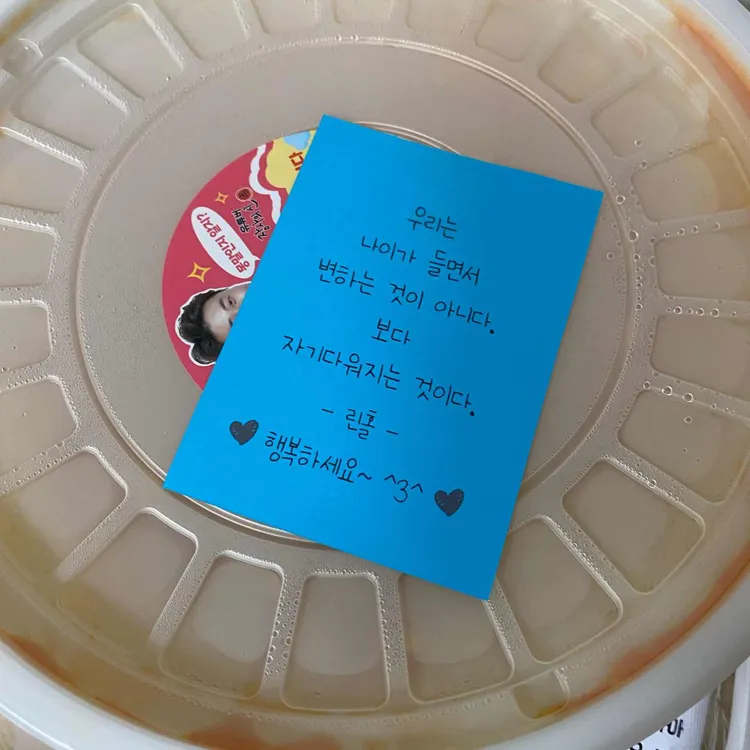 우리는
나이가 들면서
변하는 것이 아니다.
보다
자기다워지는 것이다.
- 린홀 -
행복하세요~ ^3^